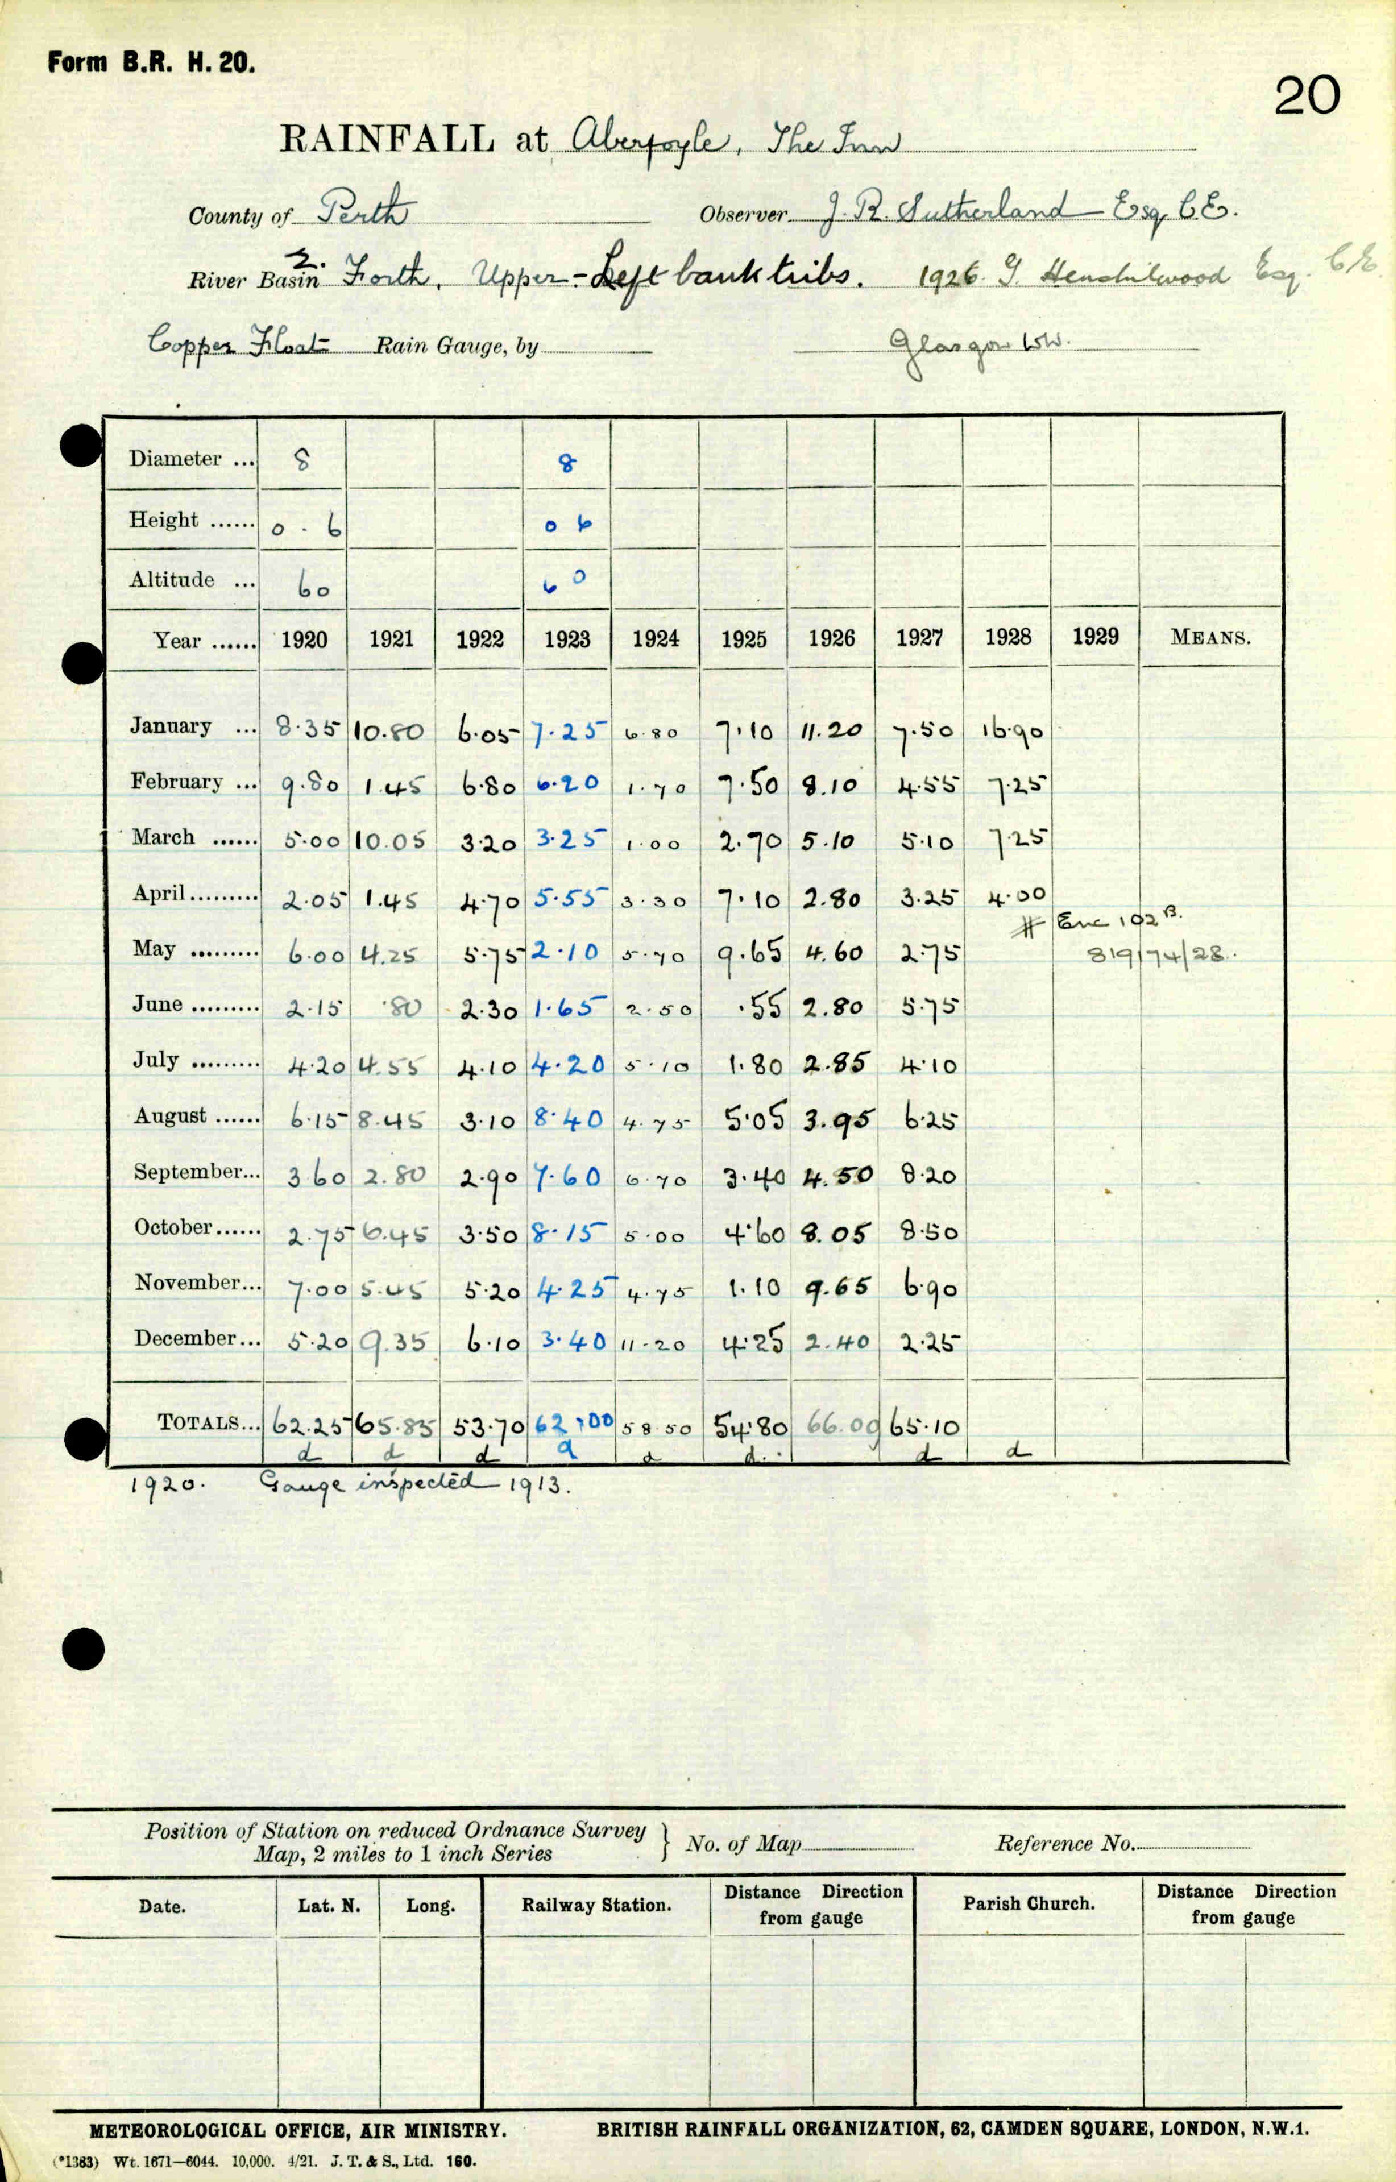 Form B.R. H. 20.
20
RAINFALL at Aberfoyle, The Inn
County of Perth Observer J. R. Sutherland Esq C.E.
2.
River Basin Forth, Upper - Left bank tribs. 1926. Esq. C.E.
Copper Float Rain Gauge, by Glasgow WW.
Diameter ... 8 8
Height ...... 0 . 6 0 6
Altitude ... 60 60
Year ...... 1920 1921 1922 1923 1924 1925 1926 1927 1928 1929 MEANS.
January ... 8.35 10.80 6.05 7.25 6.80 7.10 11.20 7.50 16.90
February ... 9.80 1.45 6.80 6.20 1.70 7.50 8.10 4.55 7.25
March ...... 5.00 10.05 3.20 3.25 1.00 2.70 5.10 5.10 7.25
April ......... 2.05 1.45 4.70 5.55 3.30 7.10 2.80 3.25 4.00
# Enc 102B.
May ......... 6.00 4.25 5.75 2.10 5.70 9.65 4.60 2.75 819174/28.
June ......... 2.15 .80 2.30 1.65 2.50 .55 2.80 5.75
July ......... 4.20 4.55 4.10 4.20 5.10 1.80 2.85 4.10
August ...... 6.15 8.45 3.10 8.40 4.75 5.05 3.95 6.25
September... 3.60 2.80 2.90 7.60 6.70 3.40 4.50 8.20
October...... 2.75 6.45 3.50 8.15 5.00 4.60 8.05 8.50
November... 7.00 5.45 5.20 4.25 4.75 1.10 9.65 6.90
December... 5.20 9.35 6.10 3.40 11.20 4.25 2.40 2.25
TOTALS... 62.25 65.85 53.70 62.00 58.50 54.80 66.00 65.10
d d d d d d. d d
1920. Gauge inspected 1913.
Position of Station on reduced Ordnance Survey
Map, 2 miles to 1 inch Series } No. of Map Reference No.
Date. Lat. N. Long. Railway Station. Distance Direction from gauge Parish Church. Distance Direction from gauge
METEOROLOGICAL OFFICE, AIR MINISTRY. BRITISH RAINFALL ORGANIZATION, 62, CAMDEN SQUARE, LONDON, N.W.1.
(*1383) Wt. 1671—6044. 10,000. 4/21. J. T. & S., Ltd. 160.